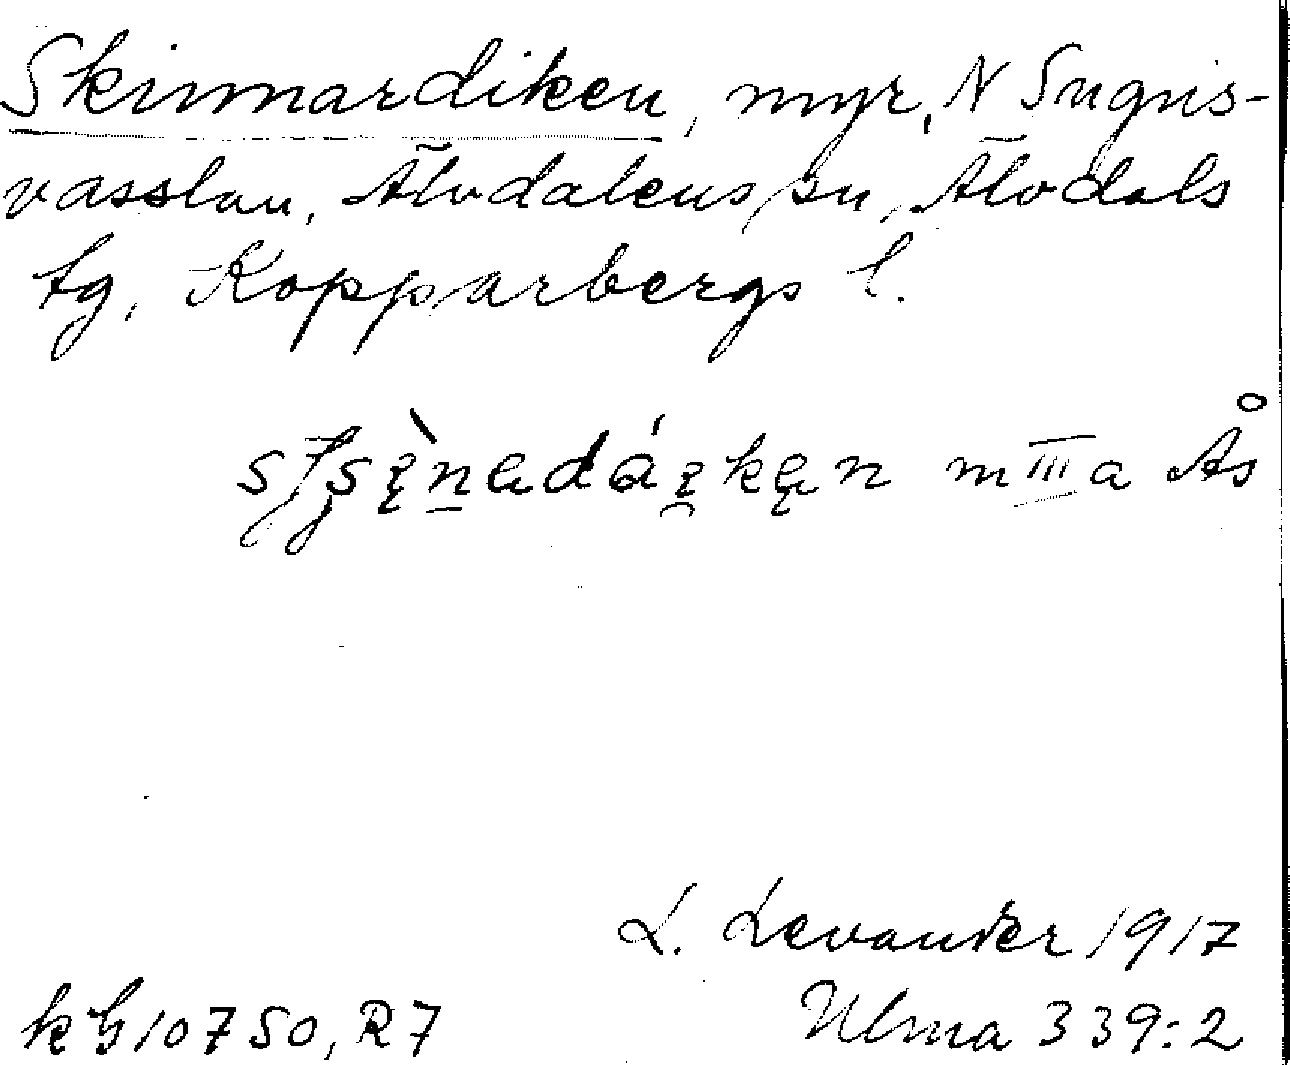 Skinnardiken, myr, N Sugnis-
vasslan, Älvdalens sn, Älvdals
tg, Kopparbergs l.
m III a Ås
L. Levander 1917
kb 10750, R7 Ulma 339:2